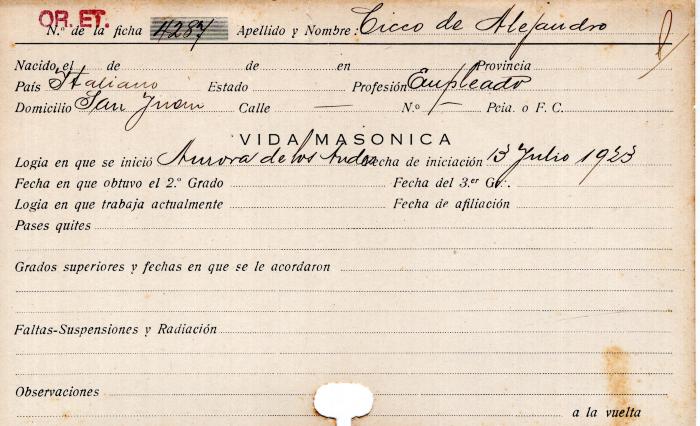 OR. ET.
N.º de la ficha 4287 Apellido y Nombre: Cicco de Alejandro
Nacido, el de de en Provincia
País Italiano Estado Profesión Empleado
Domicilio San Juan Calle — N.º — Pcia. o F. C.
VIDA MASONICA
Logia en que se inició Aurora de los Andes Fecha de iniciación 13 Julio 1923
Fecha en que obtuvo el 2.º Grado Fecha del 3.er Gr∴
Logia en que trabaja actualmente Fecha de afiliación
Pases quites
Grados superiores y fechas en que se le acordaron
Faltas-Suspensiones y Radiación
Observaciones
a la vuelta